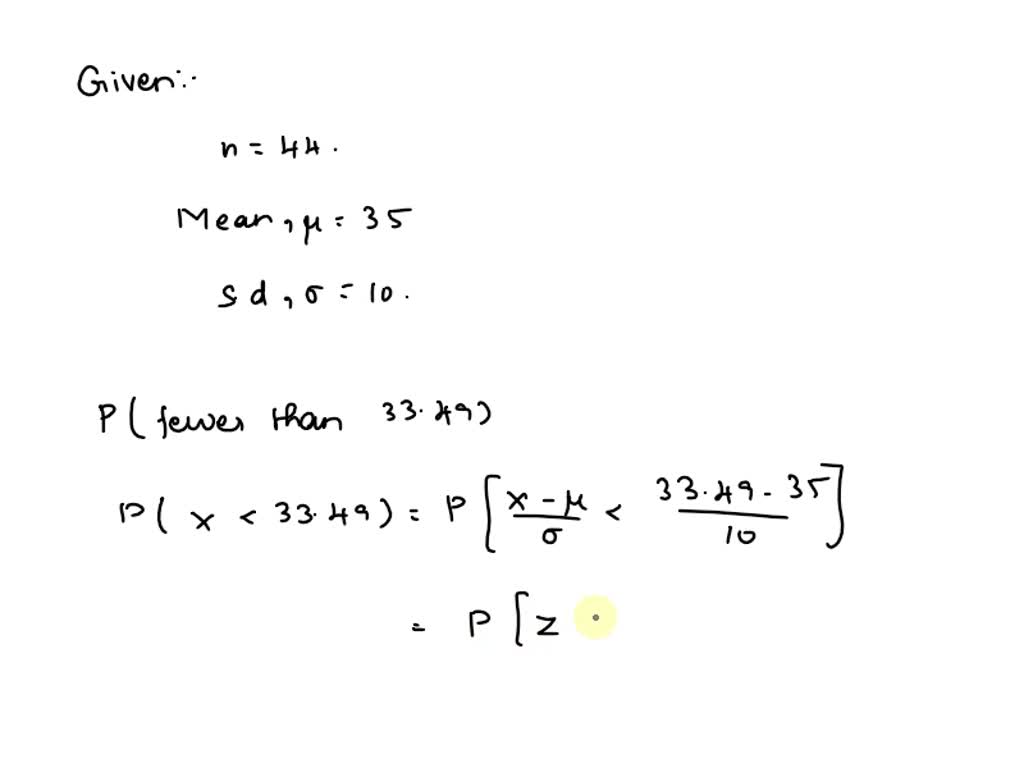 Given:-
n = 44.
Mean, μ = 35
sd, σ = 10.
P( fewer than 33.49)
P( x < 33.49) = P[ x - μ / σ < 33.49 - 35 / 10 ]
= P [ z